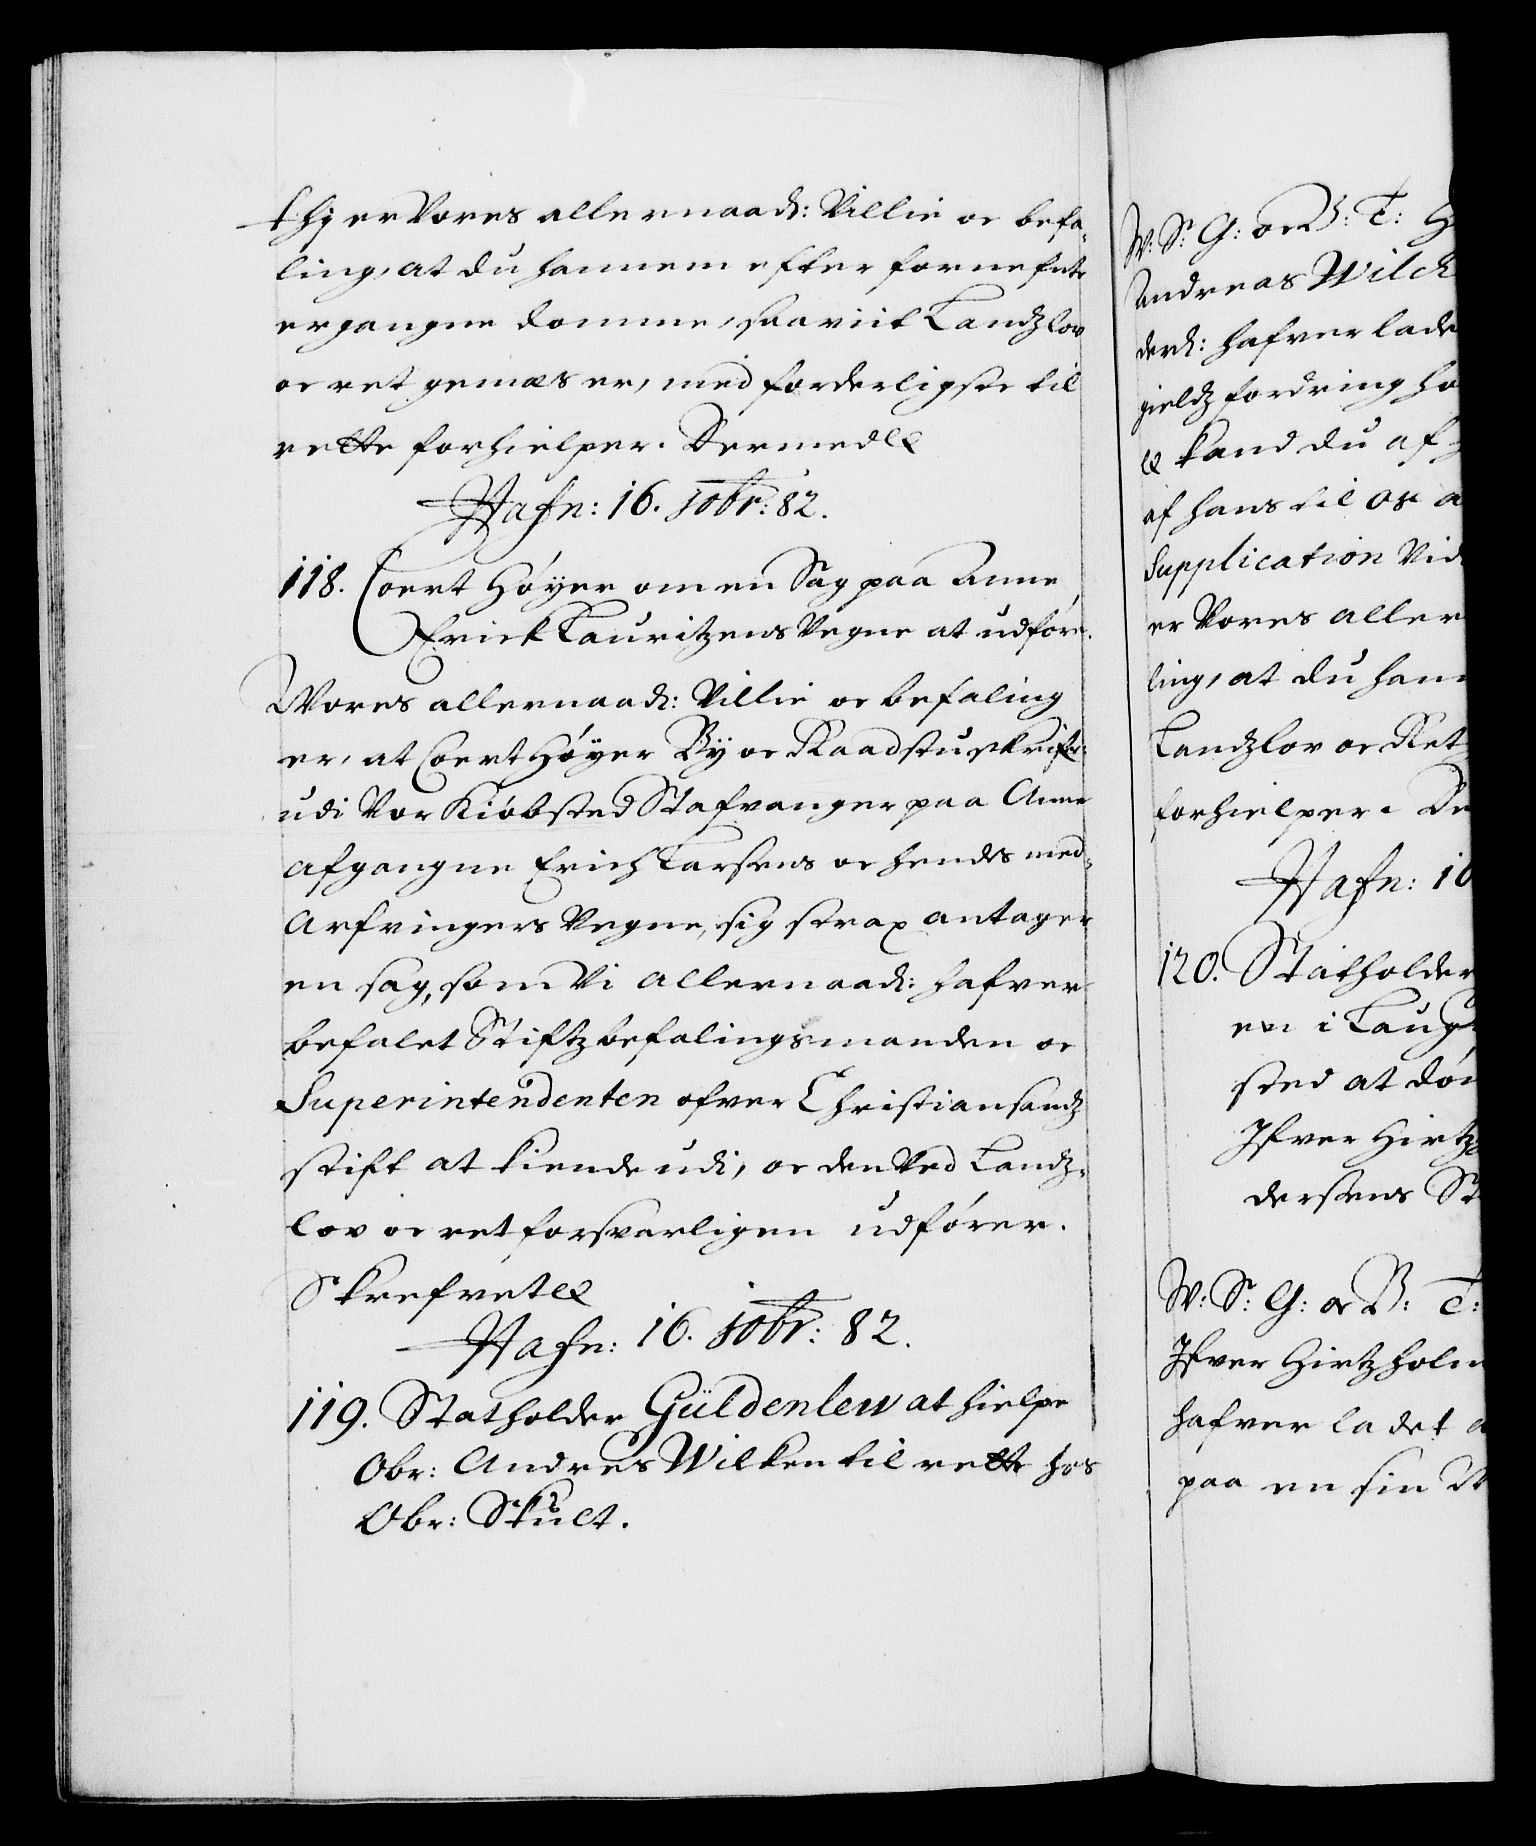 thj er Vores allernaad: Villie oc befa-
ling, at du hannem efter fornefnte
ergangne domme, saavit Landzlov
oc ret gemæs er, med forderligste til
rette forhielper. Dermed &c
Hafn: 16. Xobr: 82.
118. Coert Höyer om en Sag paa Anne
Erick Lauritzens Vegne at udføre.
Vores allernaad: Villie oc befaling
er, at Coert Höyer By oc Raadstuskrifr:
udi Vor Kiöbsted Stafvanger paa Anne
afgangne Erich Larsens oc hendes med-
Arfvingers Vegne, sig strax antager
en sag, som Vi allernaad: hafver
befalet Stiftzbefalingsmanden oc
Superintendenten ofver Christiansandz
stift at kiende udi, oc den Ved Landz-
lov oc ret forsvarligen udfører.
Skrefvet &c
Hafn: 16. Xobr: 82.
119. Statholder Güldenlew at hielpe
Obr: Andres Wilken til rette hos
Obr: Skult.
W: S: G: oc B: T: H
Andreas Wilck
derd: hafver lade
gieldz fordring ho
&c kand du af
af hans til os a
Supplication Vid
er Vores aller
ling, at du han
Landzlov oc Ret
forhielper. De
Hafn: 16
120. Statholder
en i Laug
sted at döm
Ifver Hirtz
dersens St
W: S: G: oc B: T:
Ifver Hirtzholm
hafver ladet a
paa en sin